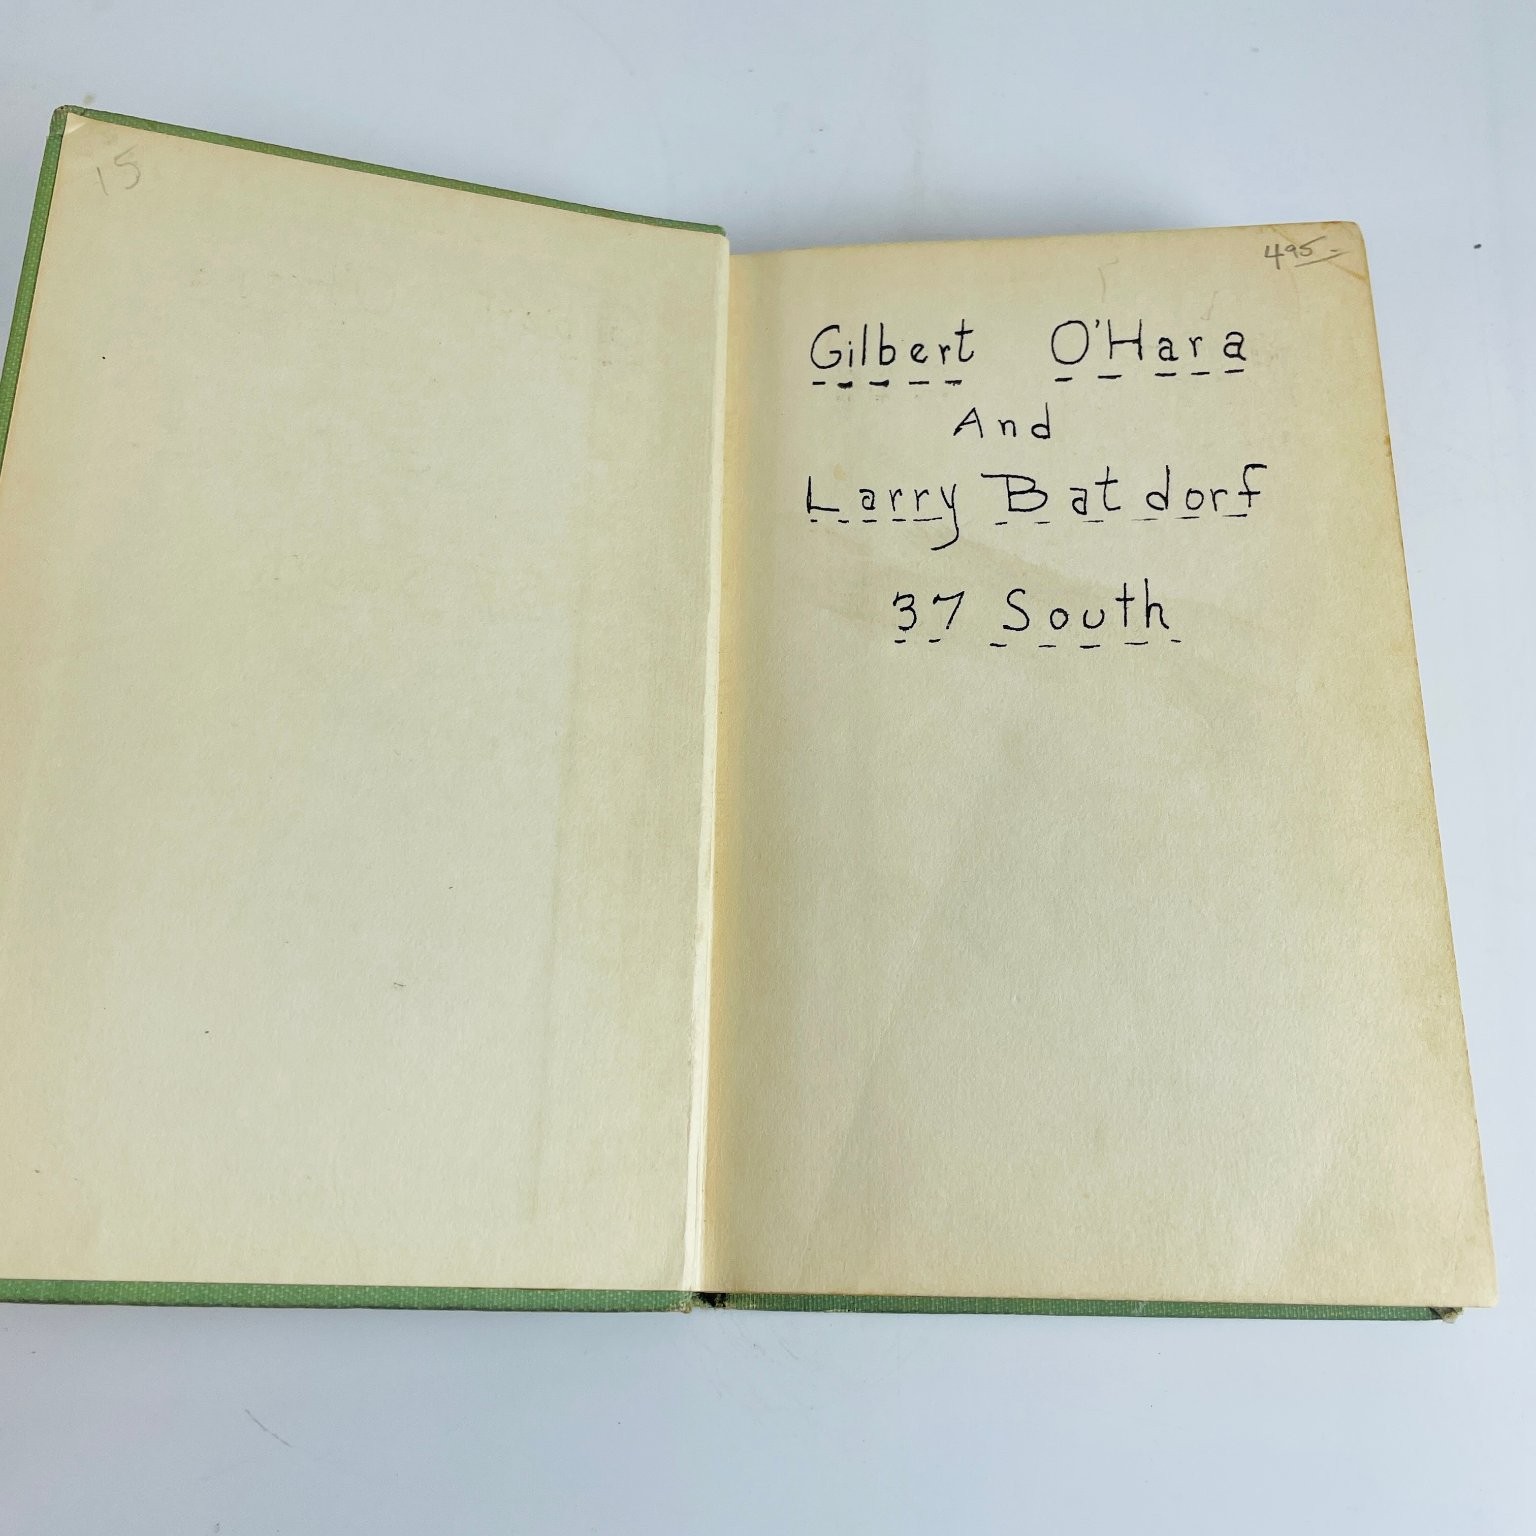 15
495-
Gilbert O'Hara
And
Larry Batdorf
37 South